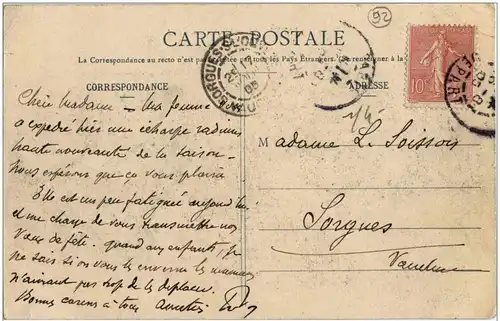 92
CARTE POSTALE
La Correspondance au recto n'est pas par tous les Pays Étrangers.
CORRESPONDANCE
ADRESSE
SORGUES
DEPART
10
Chère Madame – Ma femme
a expédié hier une écharpe
haute nouveauté de la saison –
Nous espérons que ça vous plaira
Elle est un peu fatiguée aujourd'hui
et me charge de vous transmettre nos
Vœux de fête. quand aux enfants, je
ne sais si vous les enverrai
n'aimant pas trop se déplacer.
Bonnes à tous
M adame L. Soissons
Sorgues
Vaucluse